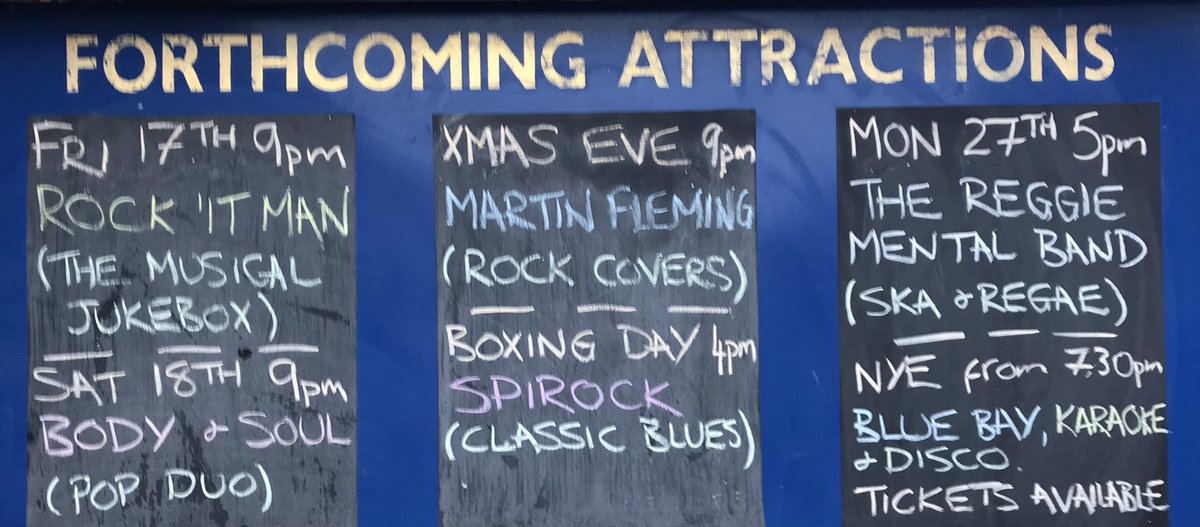 FORTHCOMING ATTRACTIONS
FRI 17TH 9pm
ROCK 'IT MAN
(THE MUSICAL
JUKEBOX)
SAT 18TH 9pm
BODY & SOUL
(POP DUO)
XMAS EVE 9pm
MARTIN FLEMING
(ROCK COVERS)
BOXING DAY 4pm
SPIROCK
(CLASSIC BLUES)
MON 27TH 5pm
THE REGGIE
MENTAL BAND
(SKA & REGAE)
NYE from 7.30pm
BLUE BAY, KARAOKE
& DISCO.
TICKETS AVAILABLE